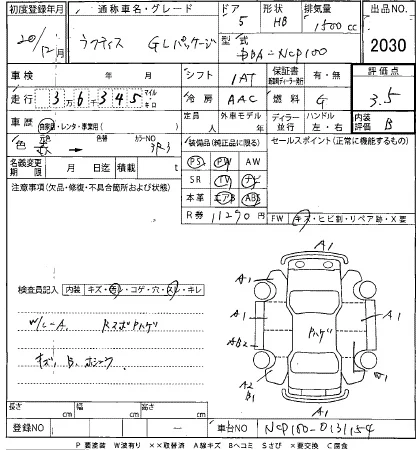 初度登録年月 通称車名・グレード ドア 形状 排気量 出品NO
20/12月 ラフティス GLパッケージ 5 HB 1500cc 2030
型式 DBA-NCP100
車検 年 月 シフト 1AT 保証書 有・無 評価点
走行 3万6千345 マイル キロ 冷房 AAC 燃料 G 3.5
車歴 自家用・レンタ・事業用( ) 定員 人 外車モデル 年 ディーラー 並行 ハンドル 左・右 内装評価 B
色 元色 赤 → 色替 カラーNO 3R3 装備品(純正品に限る) セールスポイント(正常に機能するもの)
名義変更期限 月 日迄 積載 t PS PW AW
注意事項(欠品・修復・不具合箇所および状態) SR TV ナビ
本革 エアB ABS
R券 11290円 FW キズ・ヒビ割・リペア跡・X要
検査員記入 内装 キズ・汚レ・コゲ・穴・スレ・キレ
W/C-A RスポPハゲ
キズ、B、
A1
A1 A1
A1 Pハゲ A1
AB2
A2 B1
A1
長さ cm 幅 cm 高さ cm
登録NO ― 車台NO NCP100-0131154
P要塗装 W波有り ××取替済 A線キズ Bヘコミ Sさび ×要交換 C腐食